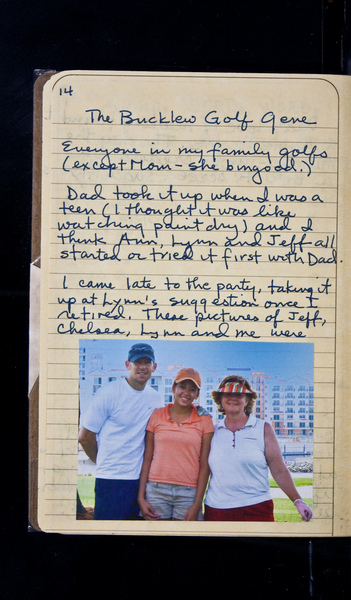 14
The Bucklew Golf Gene
Everyone in my family golfs
(except Mom - she bingoed.)
Dad took it up when I was a
teen (I thought it was like
watching paint dry) and I
think Ann, Lynn and Jeff all
started or tried it first with Dad.
I came late to the party, taking it
up at Lynn's suggestion once I
retired. These pictures of Jeff,
Chelsea, Lynn and me were